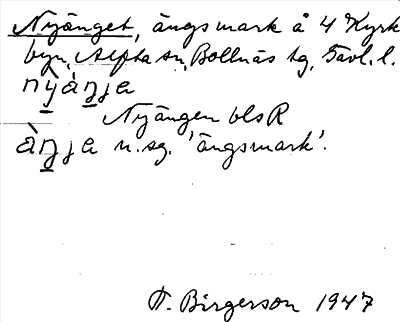 Nyänget, ängsmark å 4 Kyrk
byn, Alfta sn, Bollnäs tg, Gävl. l.
nỳànja
Nyängen bls R
ànja n. sg. 'ängsmark'.
F. Birgerson 1947